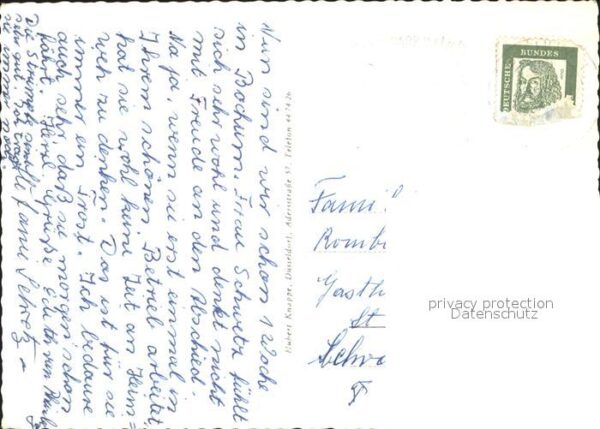 Nun sind wir schon 1 Woche
in Bochum. Frau Schwetz fühlt
sich sehr wohl und denkt nicht
mit Freude an den Abschied.
Na ja, wenn sie erst einmal in
Ihrem schönen Betrieb arbeitet
hat sie wohl keine Zeit an Heim=
weh zu denken. Das ist für sie
immer ein Trost. Ich bedaure
auch sehr daß sie morgen schon
fährt. Herzl. Grüße Edith van
Die Strümpfe
sehr gut.
Hubert Knappe, Düsseldorf, Adersstraße 57, Telefon
DEUTSCHE
BUNDES
Fami
Romb
Gasth
St
Schw
privacy protection
Datenschutz